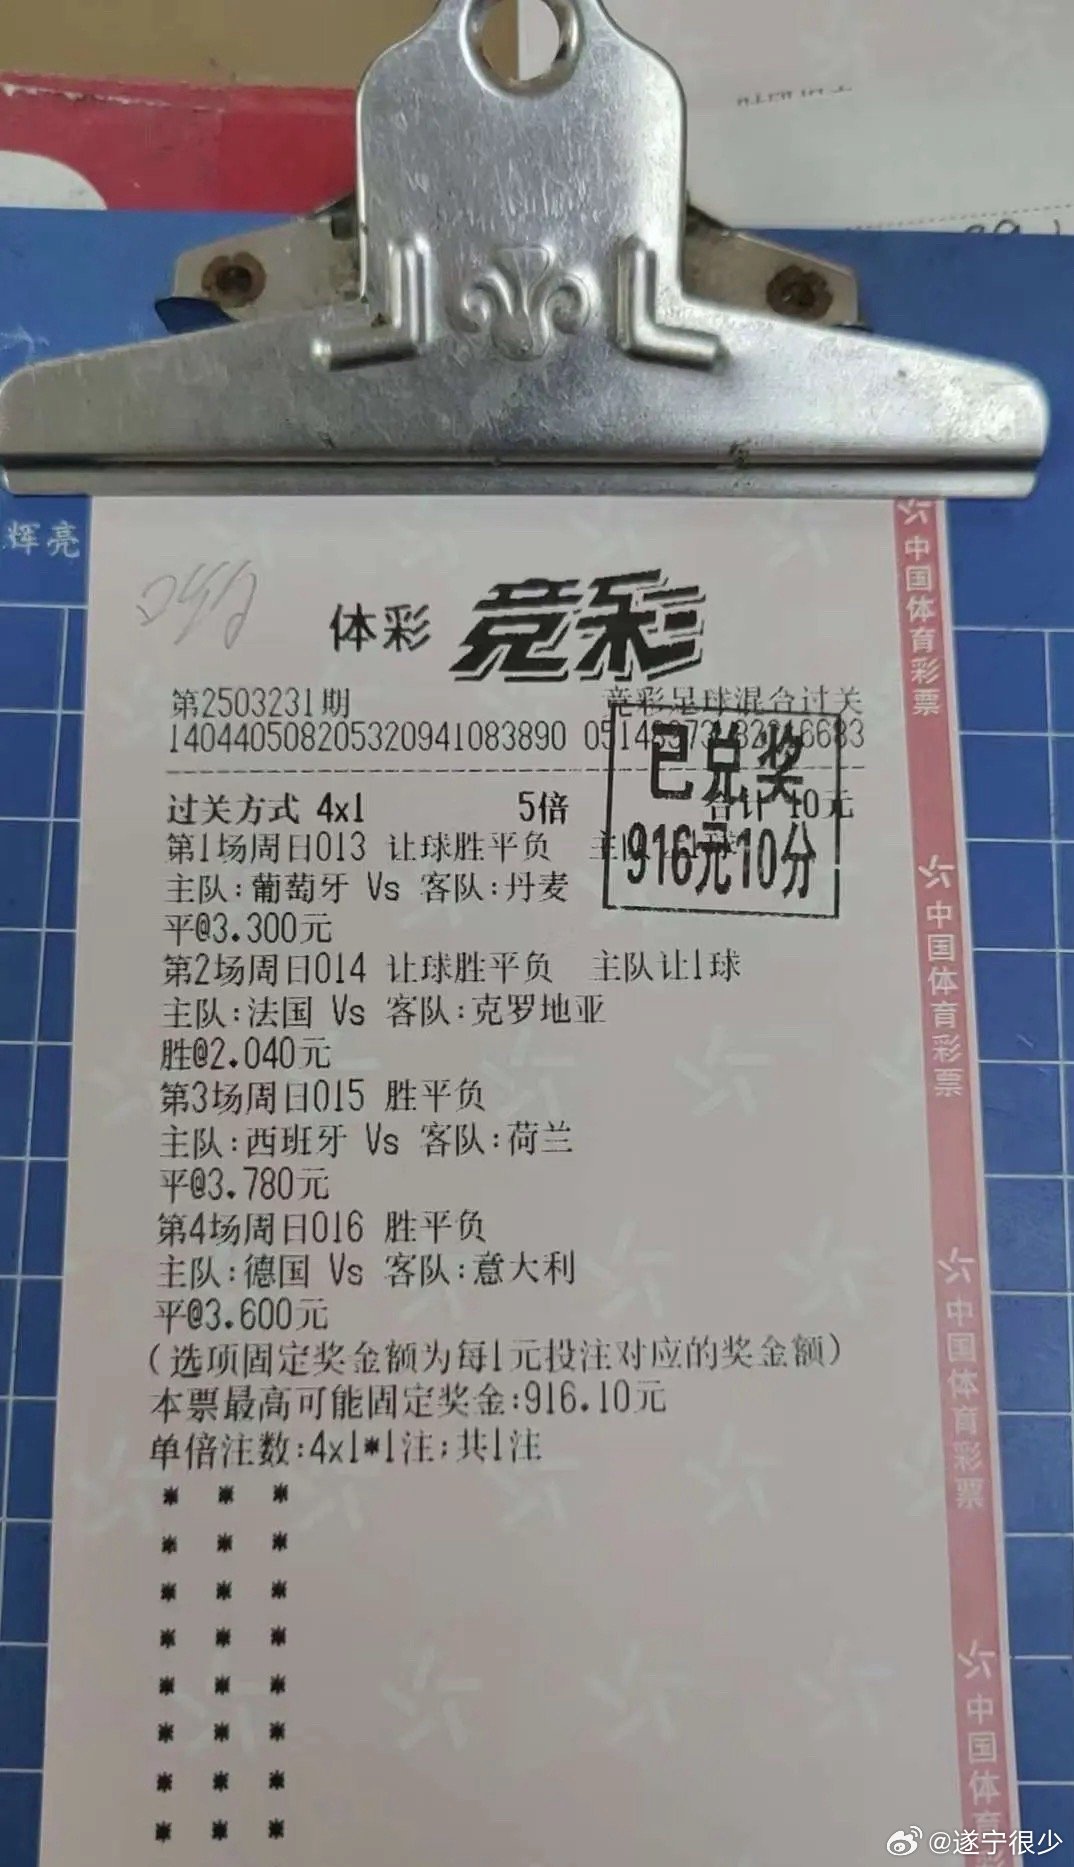 辉亮
体彩 竞彩
第2503231期 竞彩足球混合过关
140440508205320941083890
已兑奖
916元10分
过关方式 4x1 5倍 合计 10元
第1场周日013 让球胜平负
主队:葡萄牙 Vs 客队:丹麦
平@3.300元
第2场周日014 让球胜平负 主队让1球
主队:法国 Vs 客队:克罗地亚
胜@2.040元
第3场周日015 胜平负
主队:西班牙 Vs 客队:荷兰
平@3.780元
第4场周日016 胜平负
主队:德国 Vs 客队:意大利
平@3.600元
(选项固定奖金额为每1元投注对应的奖金额)
本票最高可能固定奖金:916.10元
单倍注数:4x1*1注;共1注
* * *
* * *
* * *
* * *
* * *
* * *
* * *
* * *
中国体育彩票
中国体育彩票
中国体育彩票
中国体育
@遂宁很少